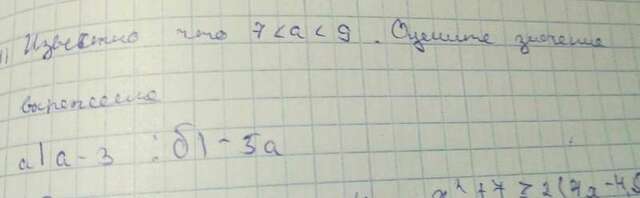 1) Известно что 7 < a < 9. Оцените значение
выражения
а) a - 3 ; б) - 5a
x² + 7 ≥ 2(7x - 4,5